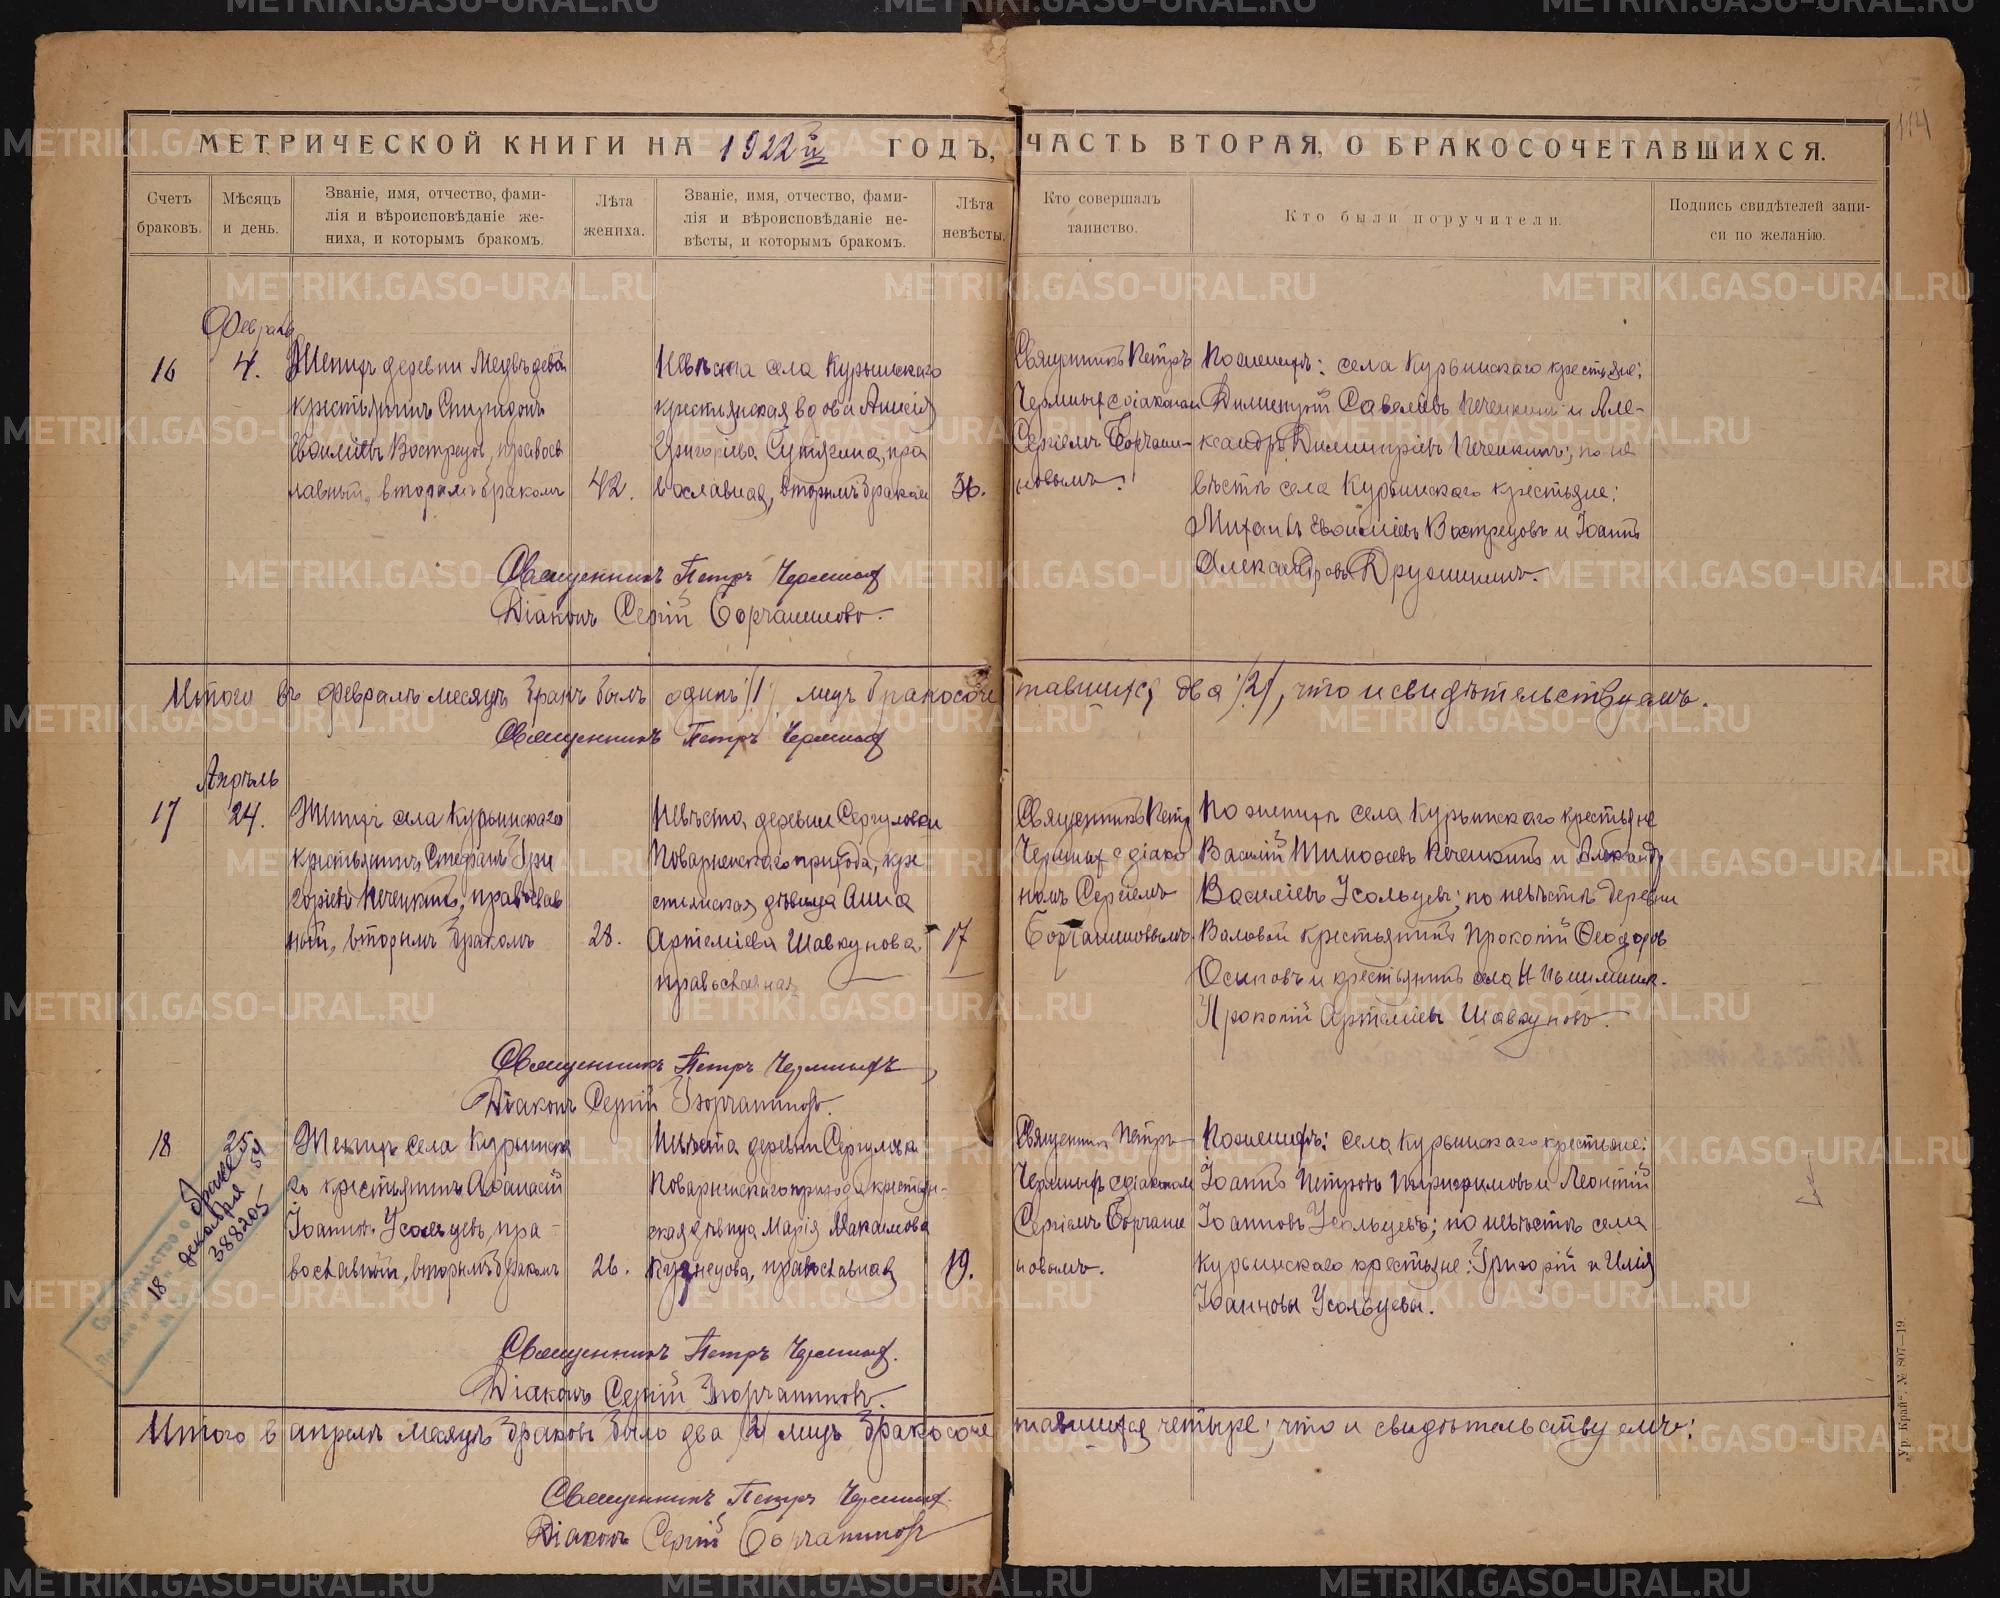 114
МЕТРИЧЕСКОЙ КНИГИ НА 1922й ГОДЪ, ЧАСТЬ ВТОРАЯ, О БРАКОСОЧЕТАВШИХСЯ.
Счетъ браковъ.
Мѣсяцъ и день.
Званіе, имя, отчество, фами-
лія и вѣроисповѣданіе же-
ниха, и которымъ бракомъ.
Лѣта жениха.
Званіе, имя, отчество, фами-
лія и вѣроисповѣданіе не-
вѣсты, и которымъ бракомъ.
Лѣта невѣсты.
Кто совершалъ таинство.
Кто были поручители.
Подпись свидѣтелей запи-
си по желанію.
Февраль
16
4.
Женихъ деревни Медвѣдева
крестьянинъ Спиридонъ
Евѳиміевъ Вострецов, правос
лавный, вторымъ бракомъ
42.
Невѣста села Курьинскаго
крестьянская вдова Анисія
Григоріева Сутягина, пра
вославная, вторымъ бракомъ
36.
Священникъ Петръ
Черныхъ с діаконом
Сергіемъ
новымъ.
По женихѣ: села Курьинскаго крестьяне:
Димитрій Савеліевъ Печенкинъ и Але-
ксандръ Димитріевъ Печенкинъ; по не
вѣстѣ села Курьинскаго крестьяне:
Михаилъ Евѳиміевъ Вострецовъ и Іоаннъ
Александровъ Дружининъ.
Священникъ Петръ
Діаконъ Сергій
Итого въ февралѣ месяцѣ бракъ былъ одинъ /1/, лицъ бракосоче тавшихся два /2/, что и свидѣтельствуемъ.
Священникъ Петръ
Апрѣль
17
24.
Женихъ села Курьинскаго
крестьянинъ Стефанъ Гри
горіевъ Печенкинъ, православ
ный, вторымъ бракомъ
28.
Невѣста деревни Сергуловки
Поварненскаго прихода, кре
стьянская дѣвица Анна
Артеміева Шавкунова,
православная
17
Священникъ Петръ
Черныхъ с діако
номъ Сергіемъ
По женихѣ села Курьинскаго крестьяне
Василій Печенкинъ и Александръ
Василіевъ Усольцевъ; по невѣстѣ деревни
Валовой крестьянинъ Прокопій Ѳеодоров
Осиповъ и крестьянинъ села Н
Прокопій Артеміевъ Шавкуновъ.
Священникъ Петръ
Діаконъ Сергій
18
25.
Женихъ села Курьинска
го крестьянинъ Афанасій
Іоаннов Усольцевъ, пра-
вославный, вторымъ бракомъ
26.
Невѣста деревни Сергуловки
Поварненскаго прихода, крестьян-
ская дѣвица Марія Максимова
Кузнецова, православная
19.
Священник Петръ
Черныхъ с діаконом
Сергіемъ
новымъ.
По женихѣ: села Курьинскаго крестьяне:
Іоаннъ Петровъ и Леонтій
Іоанновъ Усольцевъ; по невѣстѣ села
Курьинскаго крестьяне: Григорій и Илія
Іоанновы Усольцевы.
Свидетельство о браке
18 декабря 54
388205
Священникъ Петръ
Діаконъ Сергій
Итого в апрелѣ месяцѣ браковъ было два /2/ лицъ бракосоче тавшихся четыре; что и свидѣтельствуемъ:
Священникъ Петръ
Діаконъ Сергій
„Ур. Край“. № 807—19.
METRIKI.GASO-URAL.RU